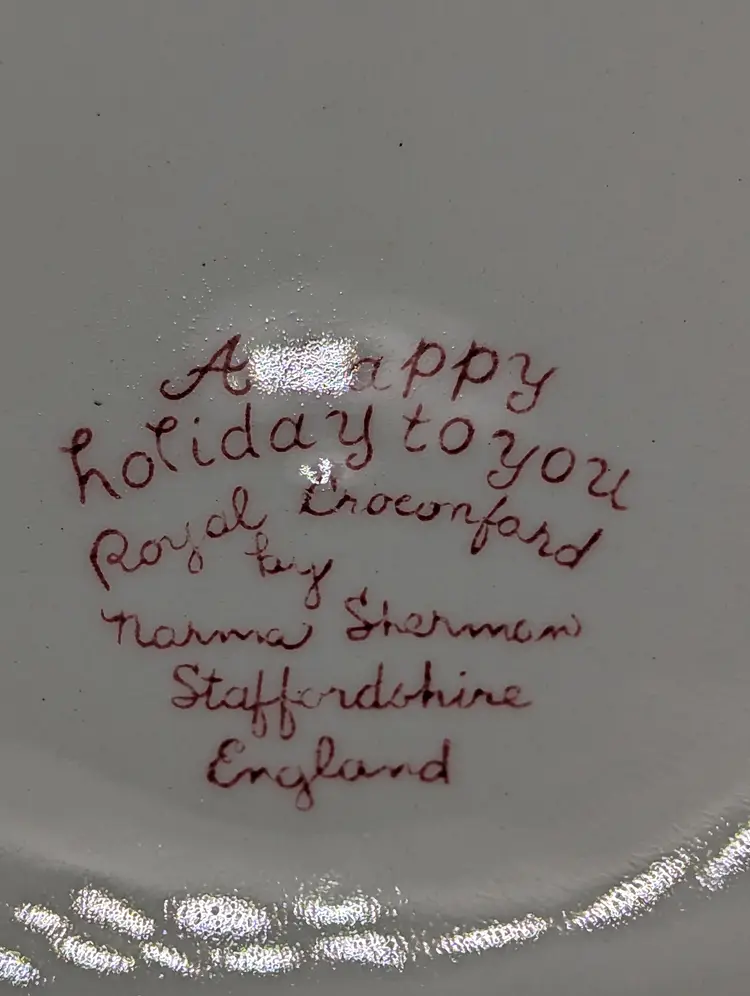 A appy
holiday to you
Royal Crownford
by
Norma Sherman
Staffordshire
England